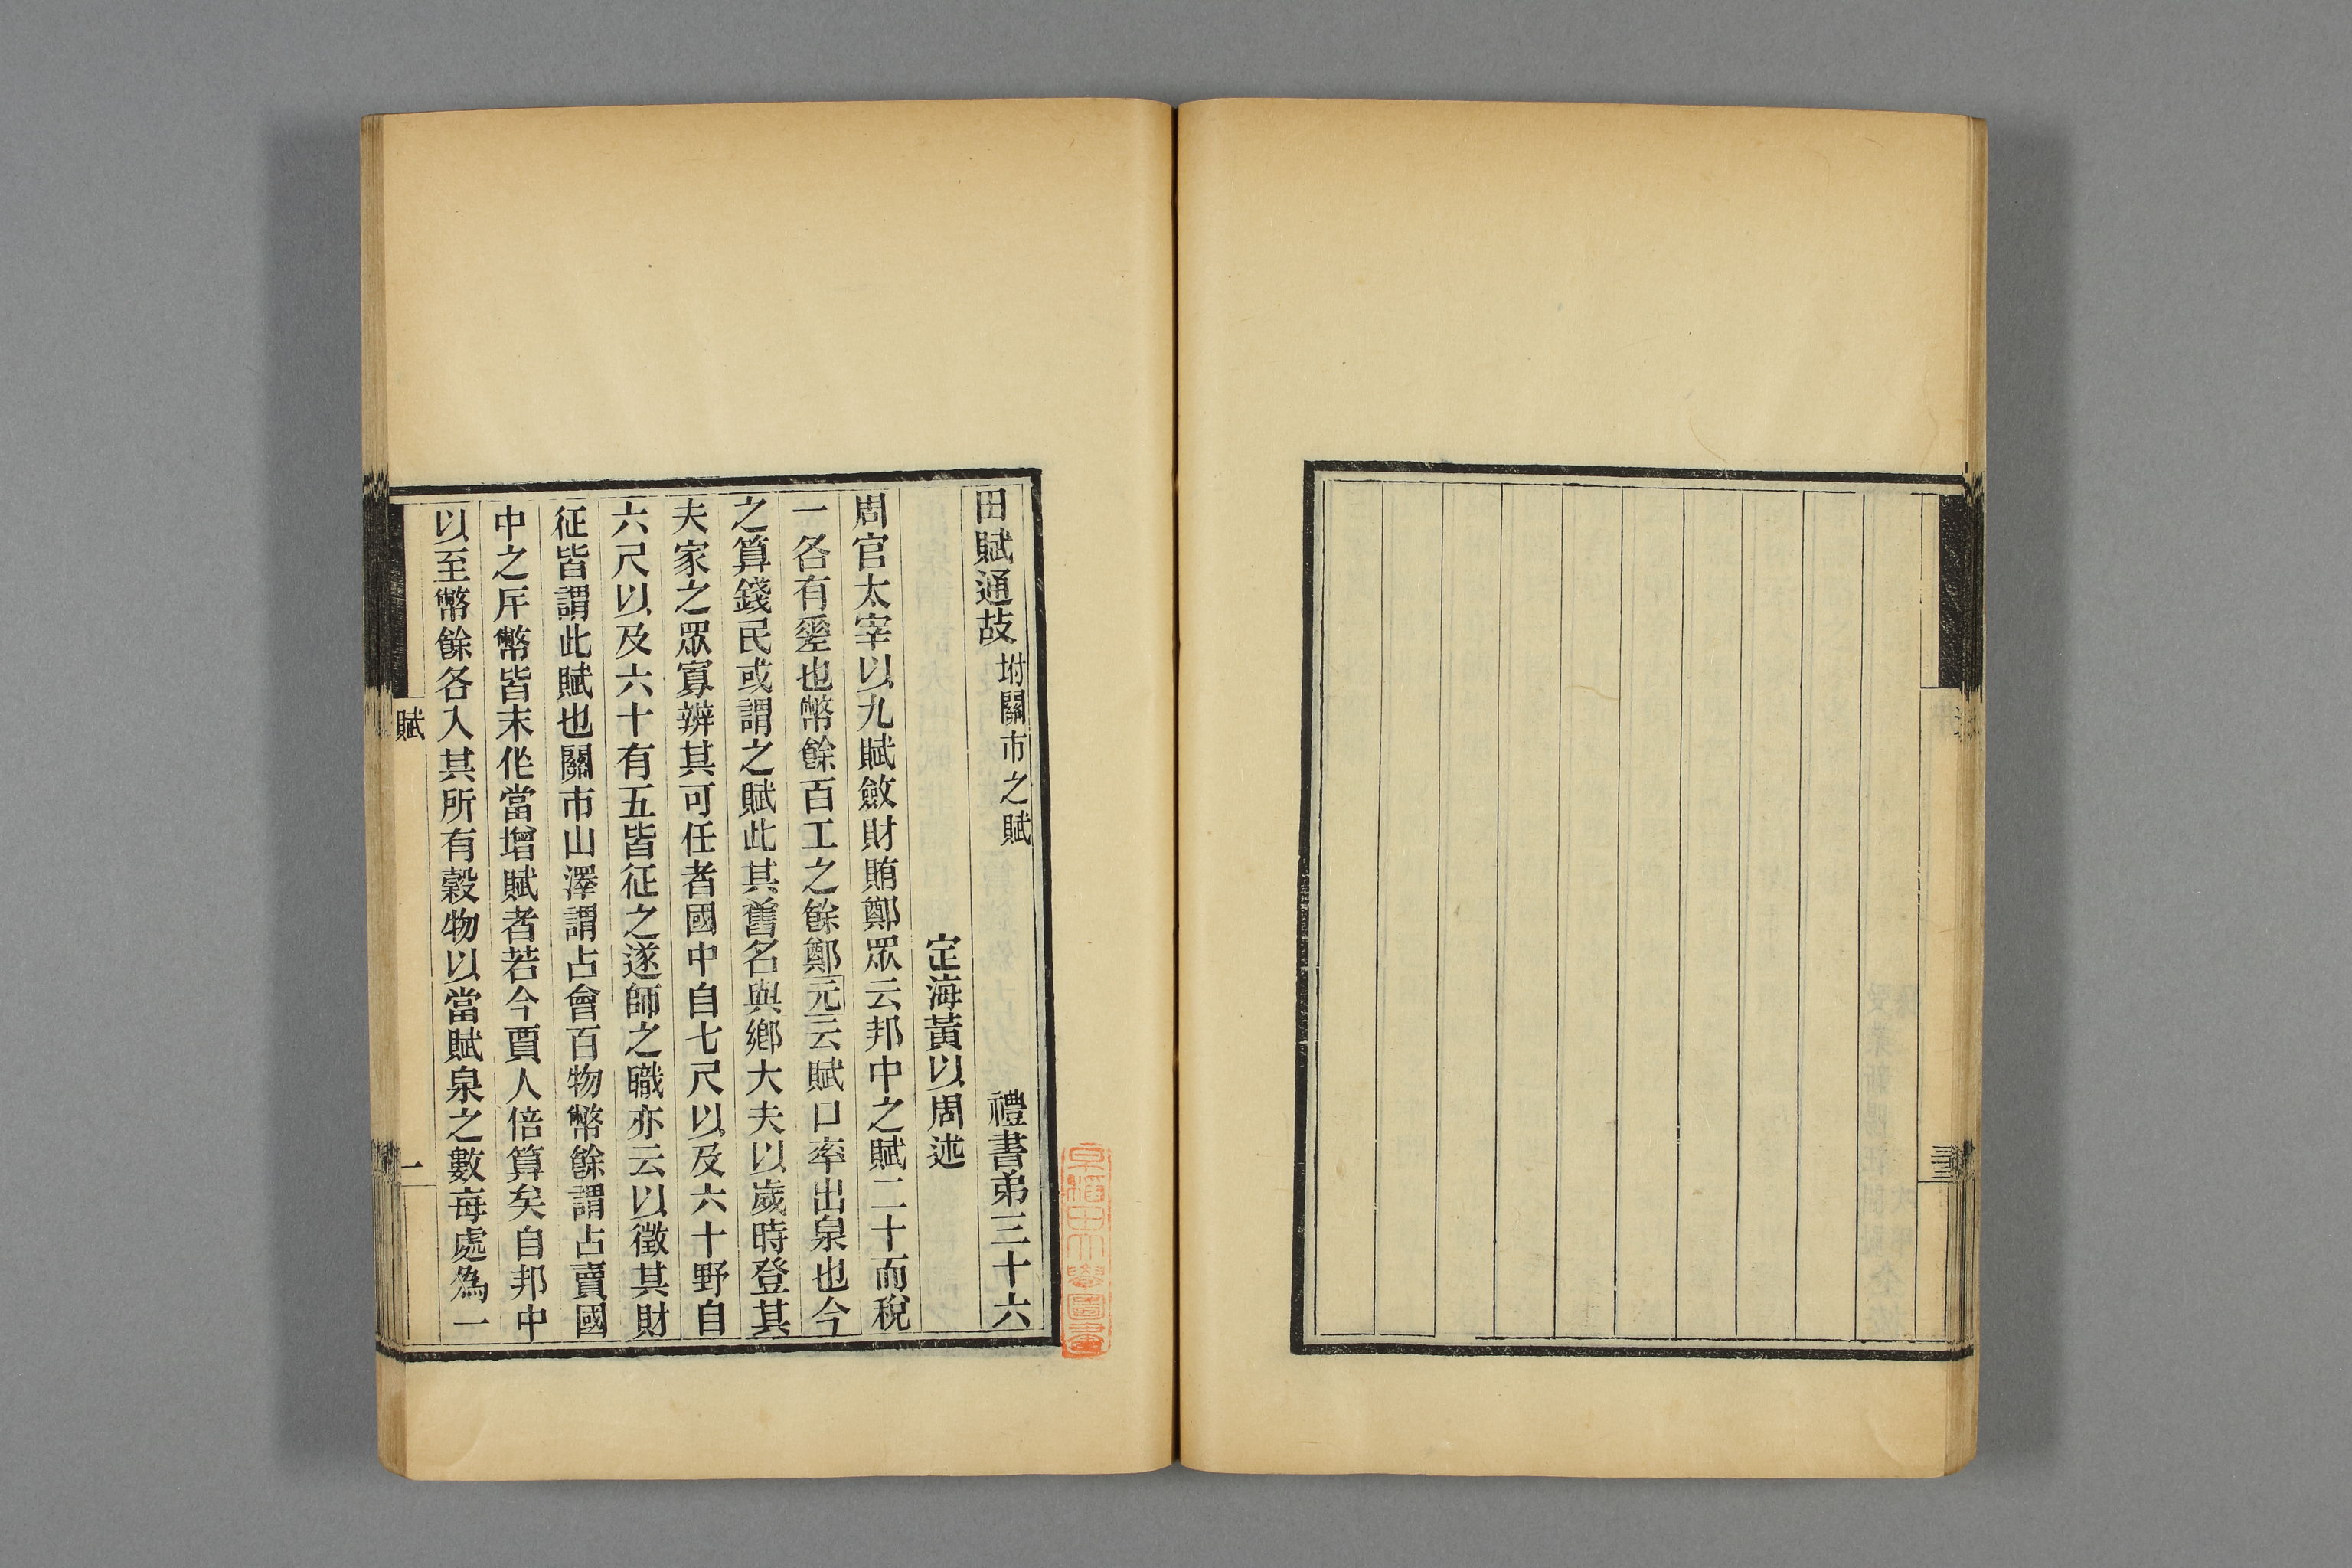 田賦通故 坿關市之賦 禮書弟三十六
定海黃以周述
周官太宰以九賦斂財賄鄭眾云邦中之賦二十而稅
一各有差也幣餘百工之餘鄭元云賦口率出泉也今
之算錢民或謂之賦此其舊名與鄉大夫以歲時登其
夫家之眾寡辨其可任者國中自七尺以及六十野自
六尺以及六十有五皆征之遂師之職亦云以徵其財
征皆謂此賦也關市山澤謂占會百物幣餘謂占賣國
中之斥幣皆末作當增賦者若今賈人倍算矣自邦中
以至幣餘各入其所有穀物以當賦泉之數每處為一
賦
一